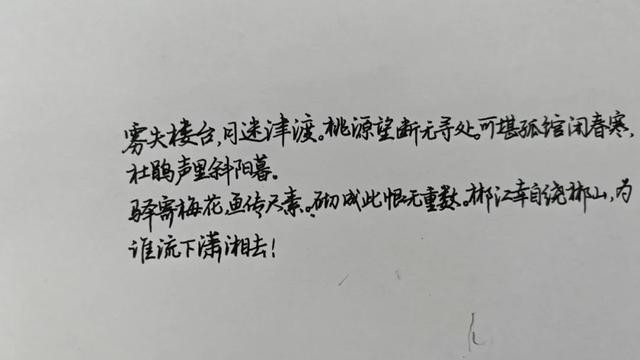 雾失楼台,月迷津渡。桃源望断无寻处。可堪孤馆闭春寒,
杜鹃声里斜阳暮。
驿寄梅花,鱼传尺素。砌成此恨无重数。郴江幸自绕郴山,为
谁流下潇湘去!